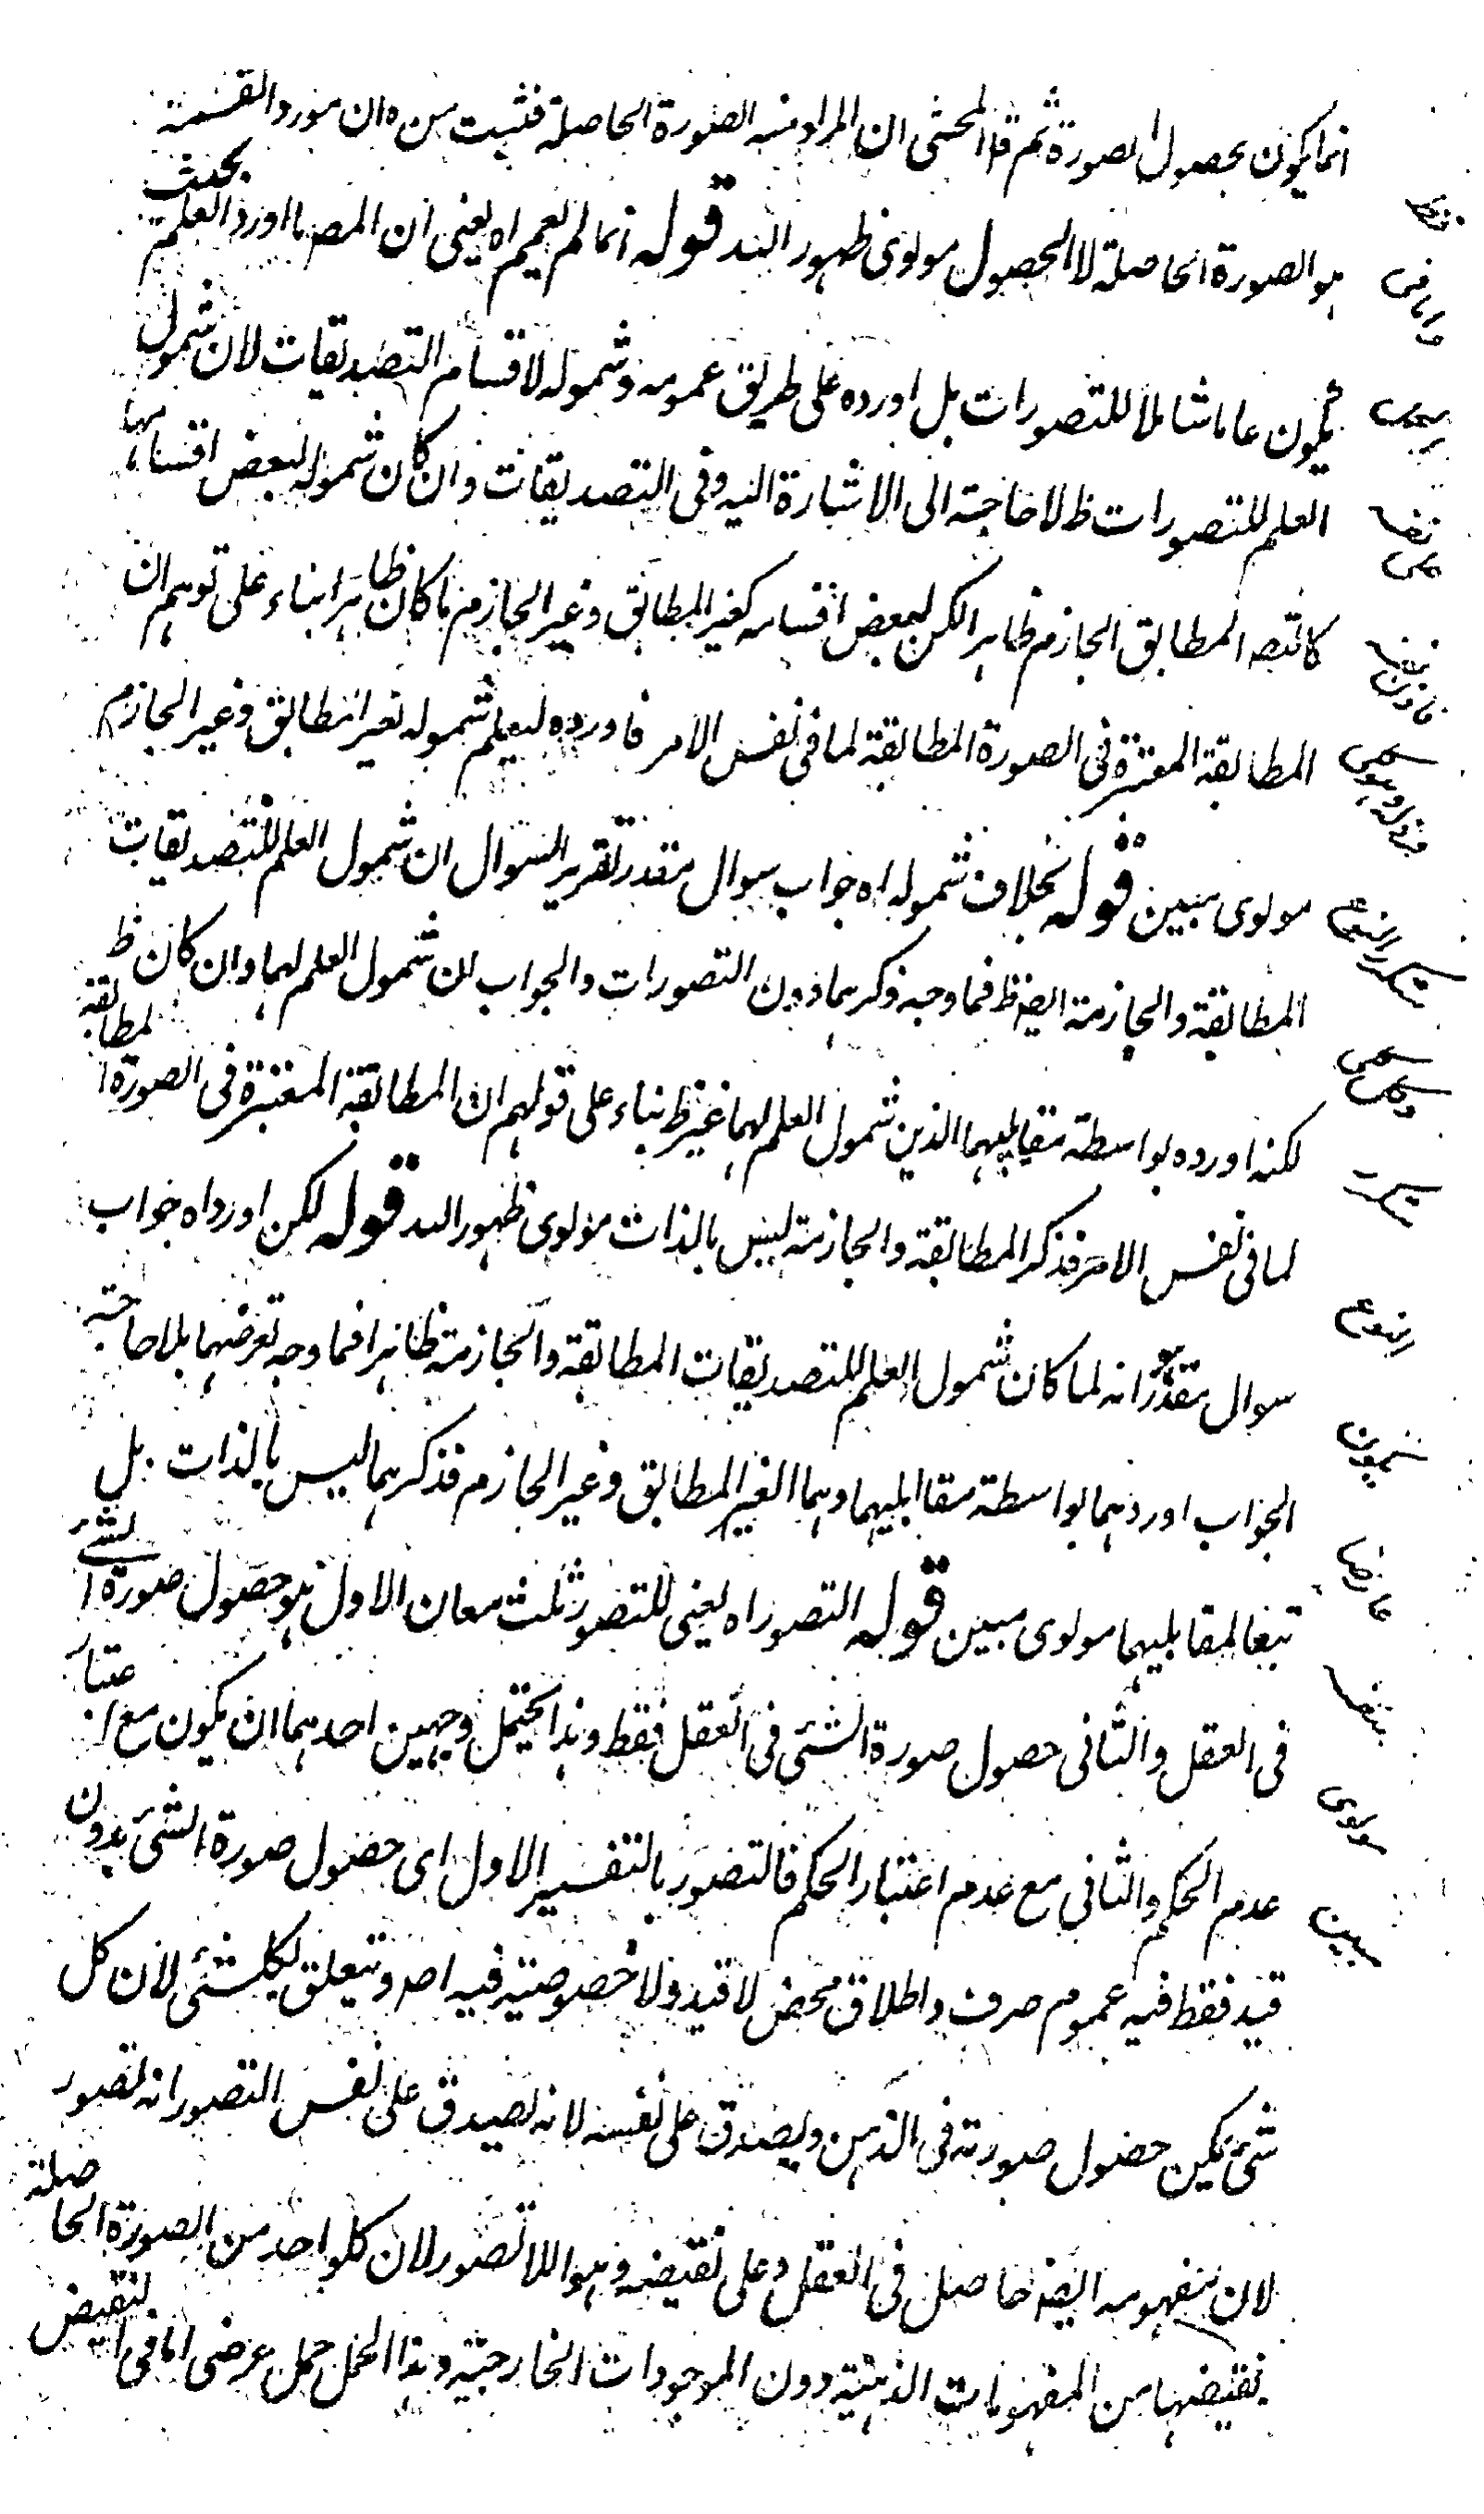 انما يكون بحصول الصورة ثم قال المحشى ان المراد منه الصورة الحاصلة فثبت من ه ان مورد القسمة
هو الصورة الحاصلة لا الحصول مولوى ظهور الله قوله انما لم يعمم اه يعنى ان المصـ ما اورد العلم بحيث
يكون عاما شاملا للتصورات بل اورده على طريق عمومه وشموله لاقسام التصديقات لان شمول
العلم للتصورات ظ لا حاجة الى الاشارة اليه وفى التصديقات وان كان شموله لبعض اقسامها
كالتصـ المطابق الجازم ظاهرا لكن لبعض اقسامه كغير المطابق وغير الجازم ما كان ظاهرا بناء على توهم ان
المطابقة المعتبرة فى الصورة المطابقة لما فى نفس الامر فاورده ليعلم شموله لغير المطابق وغير الجازم
مولوى مبين قوله بخلاف شموله اه جواب سوال مقدر تقرير السوال ان شمول العلم للتصديقات
المطابقة والجازمة ايضـ ظ فما وجه ذكرهما دون التصورات والجواب ان شمول العلم لهما وان كان ظ
لكنه اورده بواسطة مقابليهما الذين شمول العلم لهما غير ظ بناء على قولهم ان المطابقة المعتبرة فى الصورة المطابقة
لما فى نفس الامر فذكر المطابقة والجازمة ليس بالذات مولوى ظهور الله قوله لكن اورد اه جواب
سوال مقدر انه لما كان شمول العلم للتصديقات المطابقة والجازمة ظاهرا فما وجه تعرضهما بلا حاجة
الجواب اوردهما بواسطة مقابليهما وهما الغير المطابق وغير الجازم فذكرهما ليس بالذات بل
تبعا لمقابليهما مولوى مبين قوله التصور اه يعنى للتصور ثلث معان الاول هو حصول صورة الشئ
فى العقل والثانى حصول صورة الشئ فى العقل فقط وهذا يحتمل وجهين احدهما ان يكون مع اعتبار
عدم الحكم والثانى مع عدم اعتبار الحكم فالتصور بالتفسير الاول اى حصول صورة الشئ بدون
قيد فقط فيه عموم صرف واطلاق محض لا قيد ولا خصوصية فيه اصـ ويتعلق بكل شئ لان كل
شئ يمكن حصول صورته فى الذهن ويصدق على نفسه لانه يصدق على نفس التصور انه تصور
لان مفهومه ايضـ حاصل فى العقل وعلى نقيضه وهو اللا تصور لان كلواحد من الصورة الحاصلة
نقيضها من المفهومات الذهنية دون الموجودات الخارجية وهذا الحمل حمل عرضى اما فى النقيض